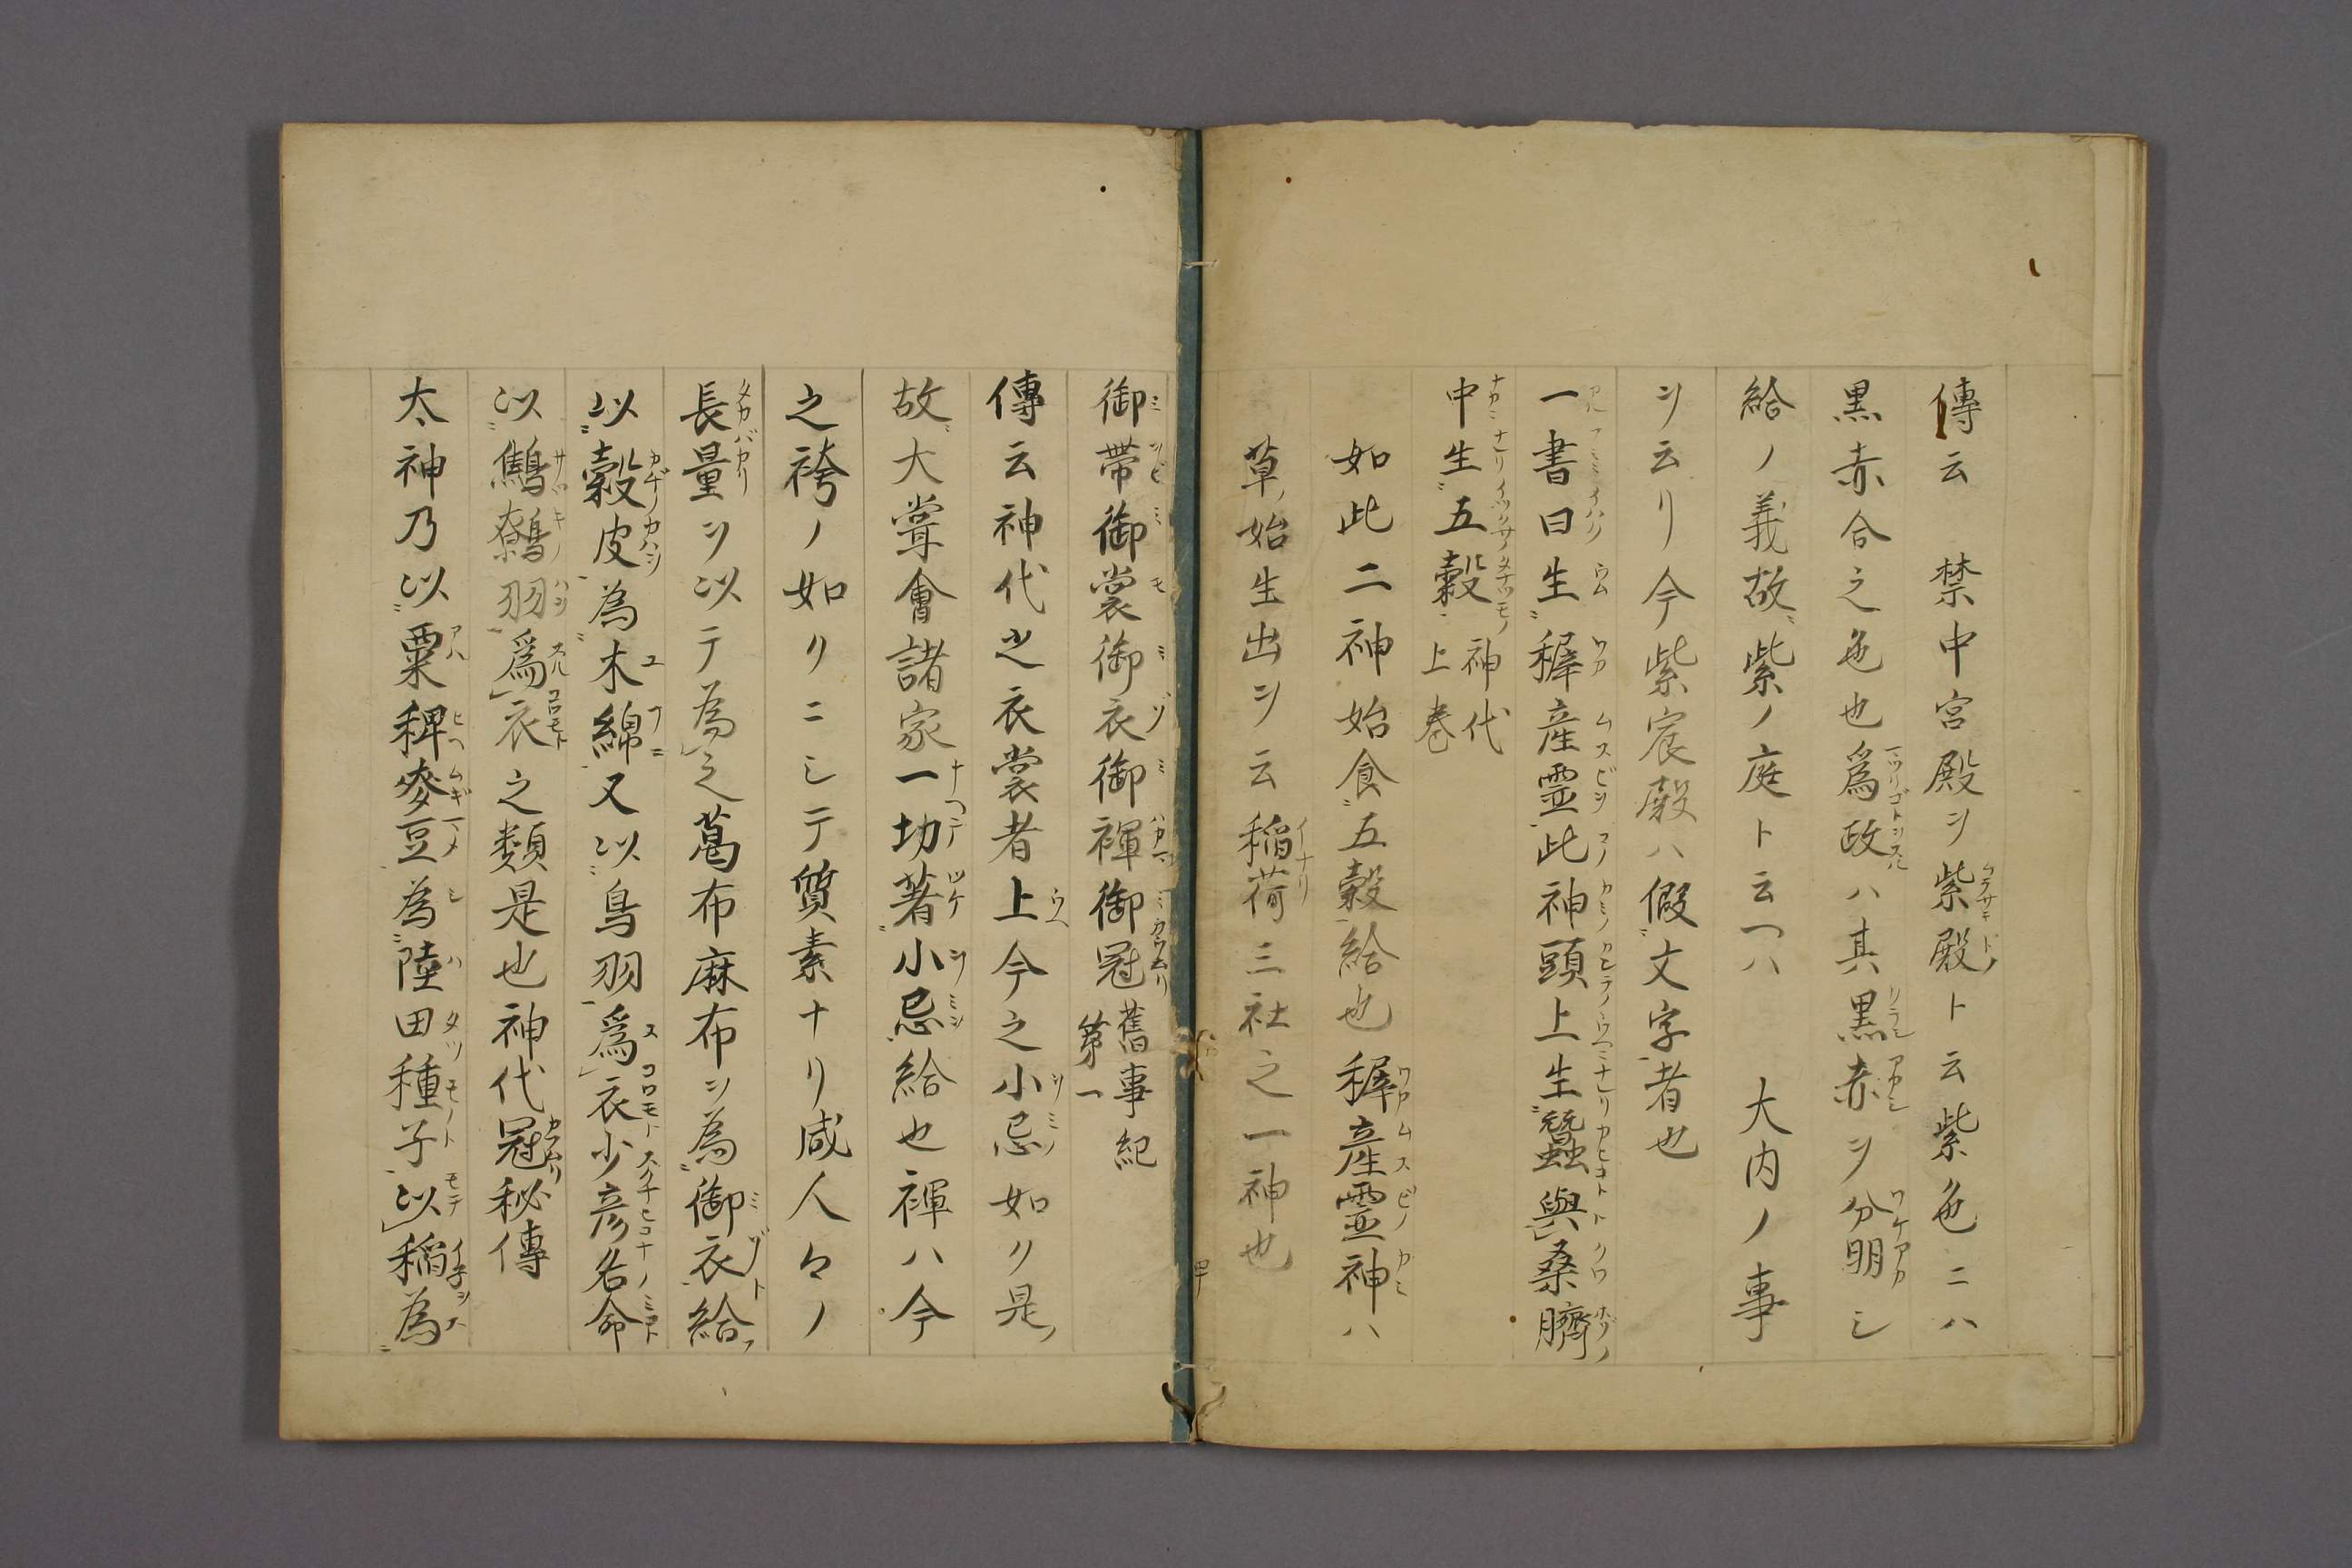 傳云　禁中宮殿ヲ紫殿ト云紫色ニハ
黒赤合之色也爲政ハ其黒赤ヲ分明シ
給ノ義故紫ノ庭ト云ハ　大内ノ事
ヲ云リ今紫宸殿ハ假文字者也
一書曰生稚産霊此神頭上生蠶與桑臍
中生五穀 神代上巻
如此二神始食五穀給也稚産霊神ハ
草始生出ヲ云稲荷三社之一神也
御帶御裳御衣御褌御冠 舊事紀第一
傳云神代之衣裳者上今之小忌如リ是
故大甞會諸家一切著小忌給也褌ハ今
之袴ノ如リニシテ質素ナリ咸人々ノ
長量ヲ以テ為之葛布麻布ヲ為御衣給
以穀皮為木綿又以鳥羽爲衣少彦名命
以鷦鷯羽爲衣之類是也神代冠秘傳
太神乃以粟稗麥豆為陸田種子以稲為